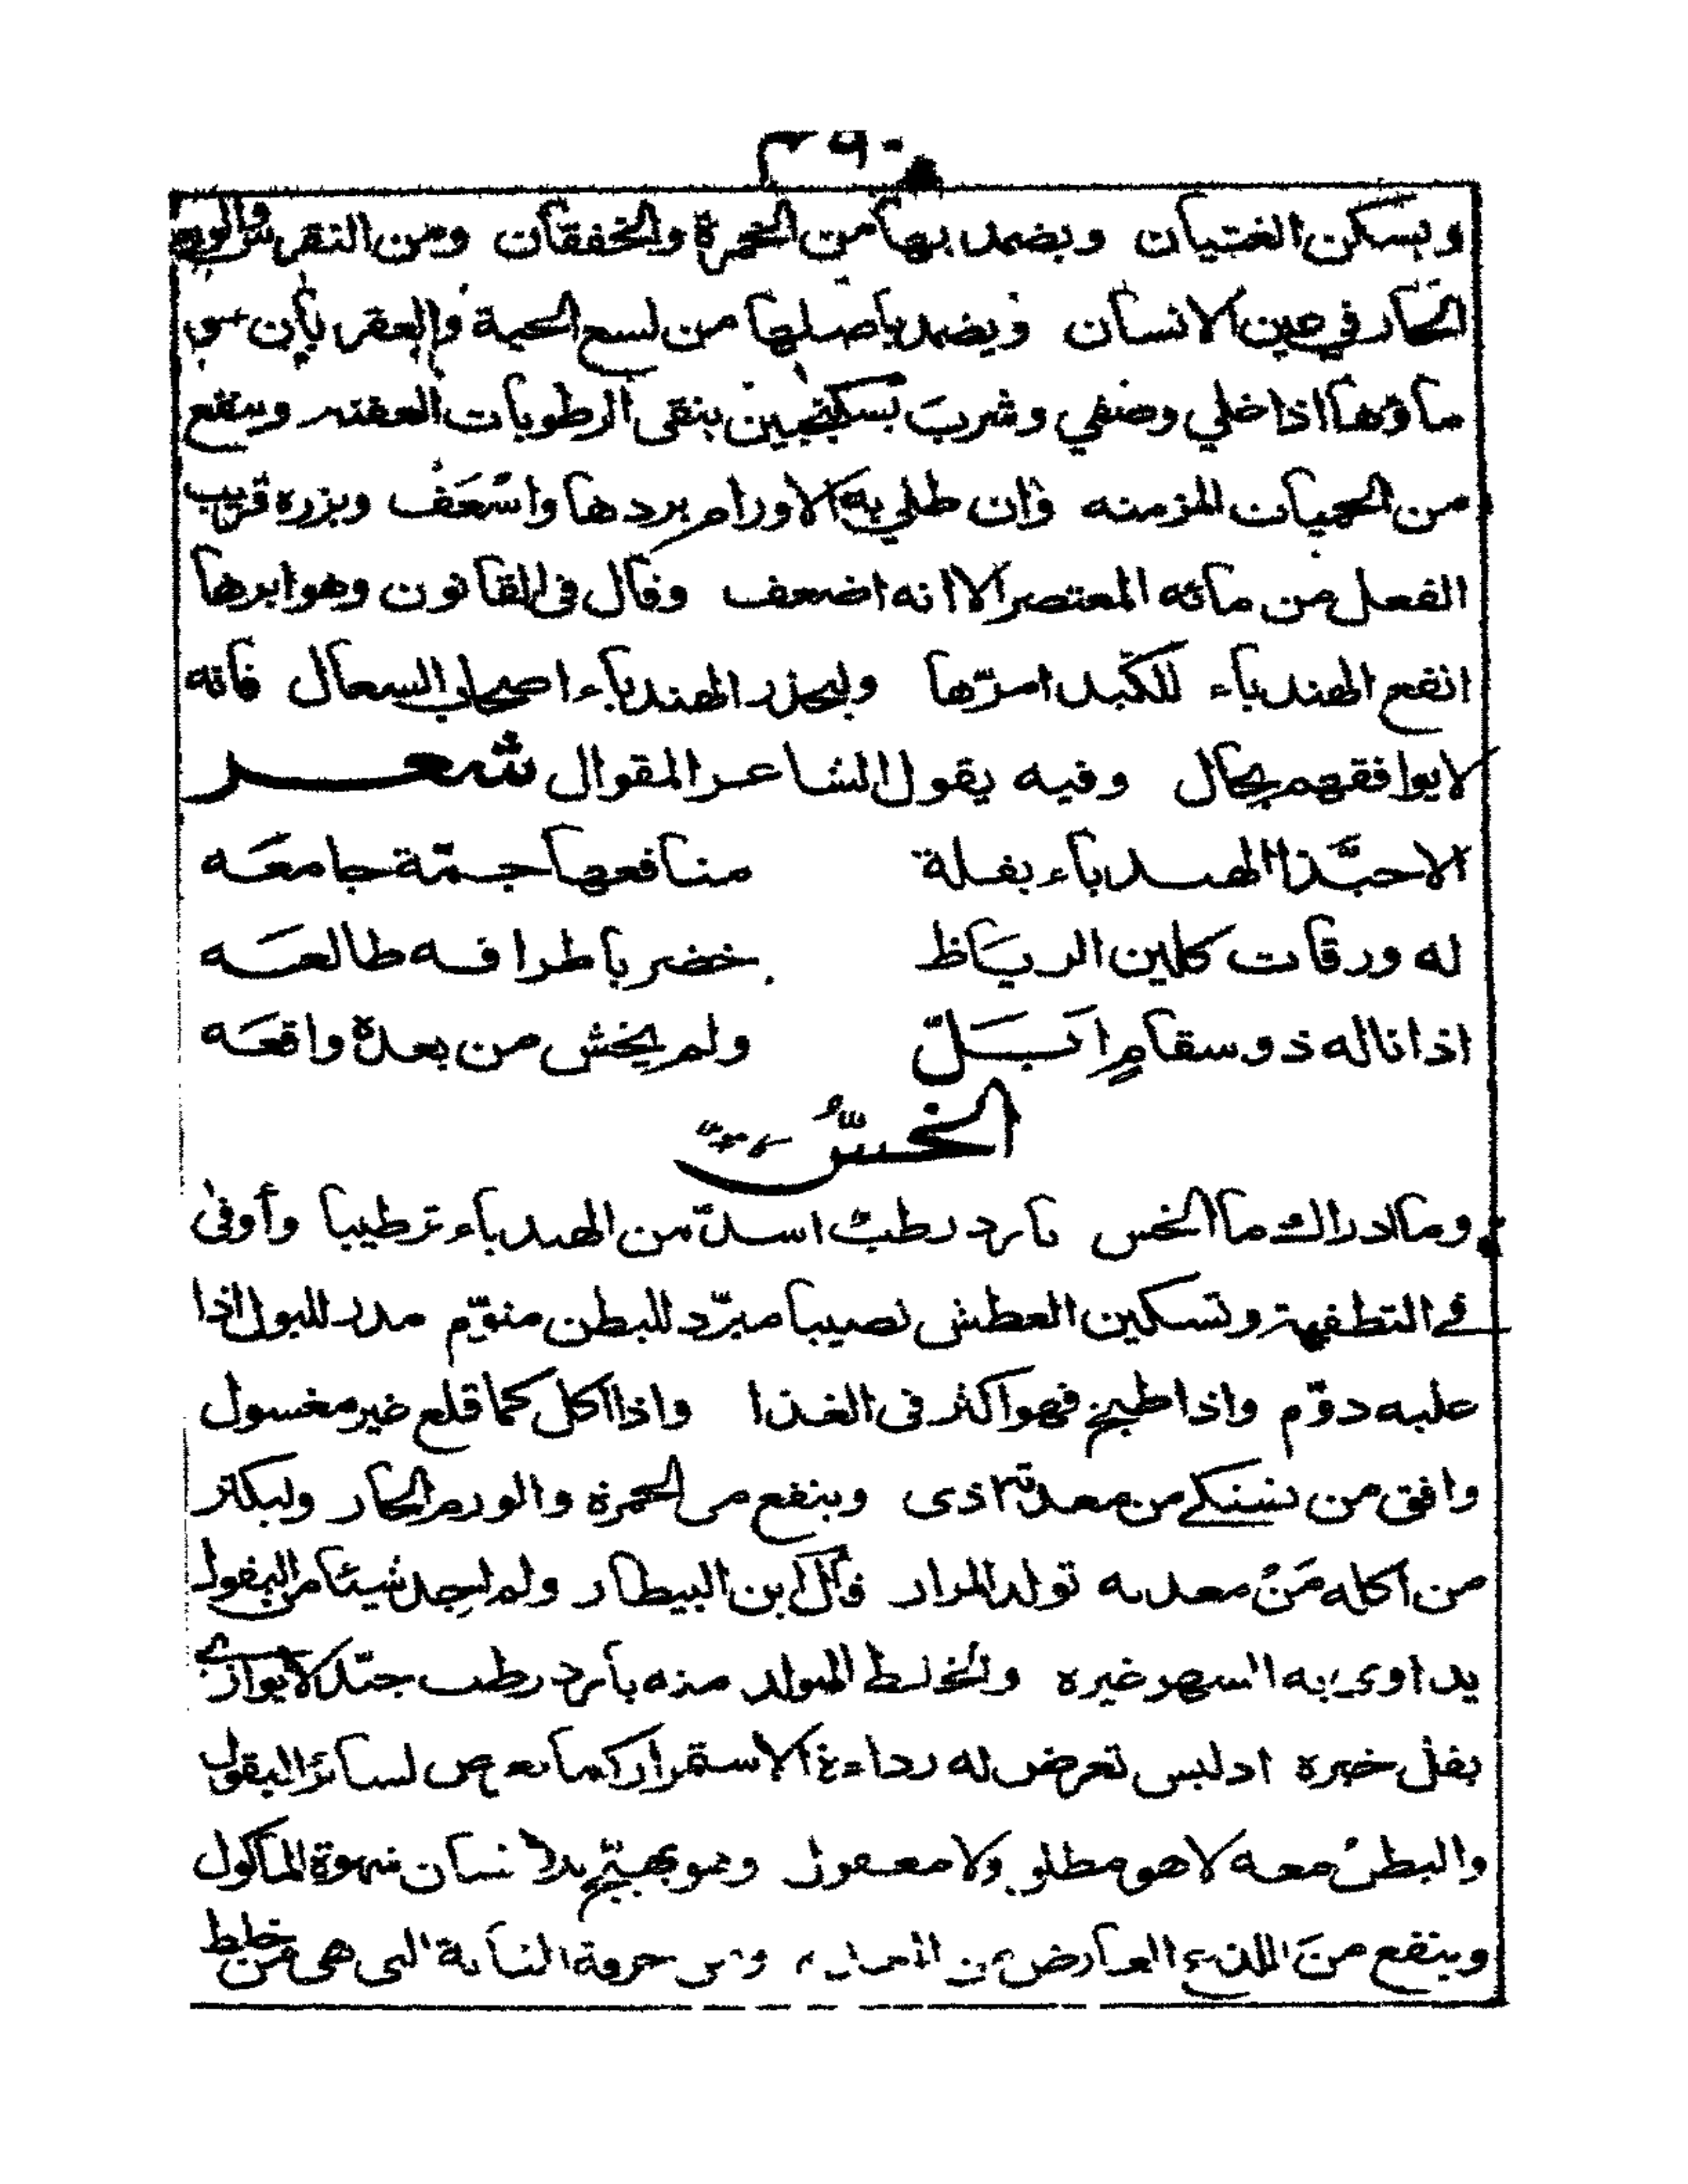 ويسكن الغثيان ويضمد بها من الحمرة والخفقان ومن النقرس والورم
الحار في عين الانسان ويضمد باصلها من لسع الحية والعقربان
ماؤها اذا غلي وصفي وشرب بسكنجبين ينقى الرطوبات العفنه وينفع
من الحميات المزمنه وان طلي به الاورام بردها واسْعَف وبزره قريب
الفعل من مائه المعتصر الا انه اضعف وقال فى القانون وهو ابرها
انفع الهندباء للكبد امرّها وليحذر الهندباء اصحاب السعال فانه
لا يوافقهم بحال وفيه يقول الشاعر المقوال شعر
الا حبّذا الهندباء بقلة منافعها جمّة جامعَه
له ورقات كلين الرياط خضر باطرافه طالعَه
اذا ناله ذو سقامٍ اَبَلّ ولم يخش من بعده واقعَه
الخسّ
وما ادراك ما الخس بارد رطب اشدّ من الهندباء ترطيبا وأوفى
في التطفية وتسكين العطش نصيبا مبرّد للبطن منوّم مدر للبول اذا
عليه دوّم واذا طبخ فهو اكثر فى الغذا واذا اكل كما قلع غير مغسول
وافق من يشتكي من معدته اذى وينفع من الحمرة والورم الحار وليكثر
من اكله مَنْ معدته تولد المرار قال ابن البيطار ولم اجد شيئا من البقول
يداوى به السهر غيره والخلط المولد منه بارد رطب جيّد لا يوازي
بقل خيره اذ ليس تعرض له رداءة الاستمرار كما تعرض لسائر البقول
والبطن معه لا هو مطلق ولا معقول وهو يهيّج بالانسان شهوة المأكول
وينفع من اللذع العارض من ومن حرقة المثانة التى هى من خلط